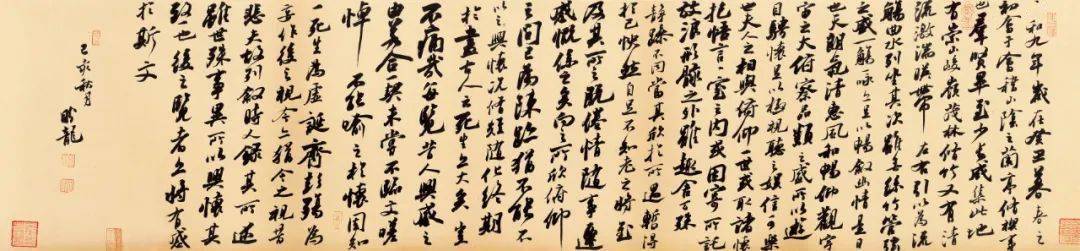 永和九年歲在癸丑暮春之
初會于會稽山陰之蘭亭修禊事
也群賢畢至少長咸集此地
有崇山峻嶺茂林修竹又有清
流激湍暎帶左右引以為流
觴曲水列坐其次雖無絲竹管弦
之盛一觴一詠亦足以暢敘幽情是日
也天朗氣清惠風和暢仰觀宇
宙之大俯察品類之盛所以遊
目騁懷足以極視聽之娛信可樂
也夫人之相與俯仰一世或取諸懷
抱悟言一室之內或因寄所託
放浪形骸之外雖趣舍萬殊
靜躁不同當其欣於所遇暫得
於己快然自足不知老之將至
及其所之既倦情隨事遷
感慨係之矣向之所欣俯仰
之間已為陳跡猶不能不
以之興懷況修短隨化終期
於盡古人云死生亦大矣豈
不痛哉每覽昔人興感之
由若合一契未嘗不臨文嗟
悼不能喻之於懷固知
一死生為虛誕齊彭殤為
妄作後之視今亦猶今之視昔
悲夫故列敘時人錄其所述
雖世殊事異所以興懷其
致一也後之覽者亦將有感
於斯文
己亥秋月
龍